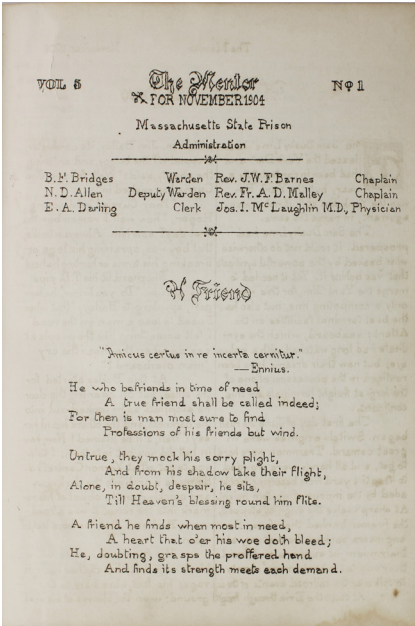 VOL 5 The Mentor No 1
FOR NOVEMBER 1904
Massachusetts State Prison
Administration
B. F. Bridges Warden Rev. J. W. F. Barnes Chaplain
N. D. Allen Deputy Warden Rev. Fr. A. D. Malley Chaplain
E. A. Darling Clerk Jos. I. McLaughlin M.D., Physician
A Friend
"Amicus certus in re incerta cernitur."
—Ennius.
He who befriends in time of need
A true friend shall be called indeed;
For then is man most sure to find
Professions of his friends but wind.
Untrue, they mock his sorry plight,
And from his shadow take their flight,
Alone, in doubt, despair, he sits,
Till Heaven's blessing round him flits.
A friend he finds when most in need,
A heart that o'er his woe doth bleed;
He, doubting, grasps the proffered hand
And finds its strength meets each demand.